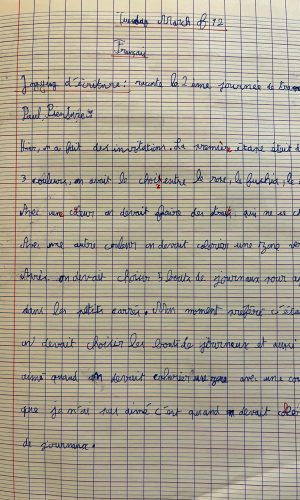 Tuesday March 12
Français
Jogging d'écriture : raconte la 2 ème journée de
Paul
Hier, on a fait des invitations. La première étape était d
3 couleurs, on avait le choix entre le rose, le fuchia, le
Avec un cœur on devait faire des traits qui ne se
Avec une autre couleur on devait colorier une zone
Après on devait choisir 5 bouts de journaux pour
dans les petits carrés. Mon moment préféré c'éta
on devait choisir les bouts de journeux et aussi
aimé quand on devait colorier une zone avec une co
que je n'ai pas aimé c'est quand on devait
de journaux.